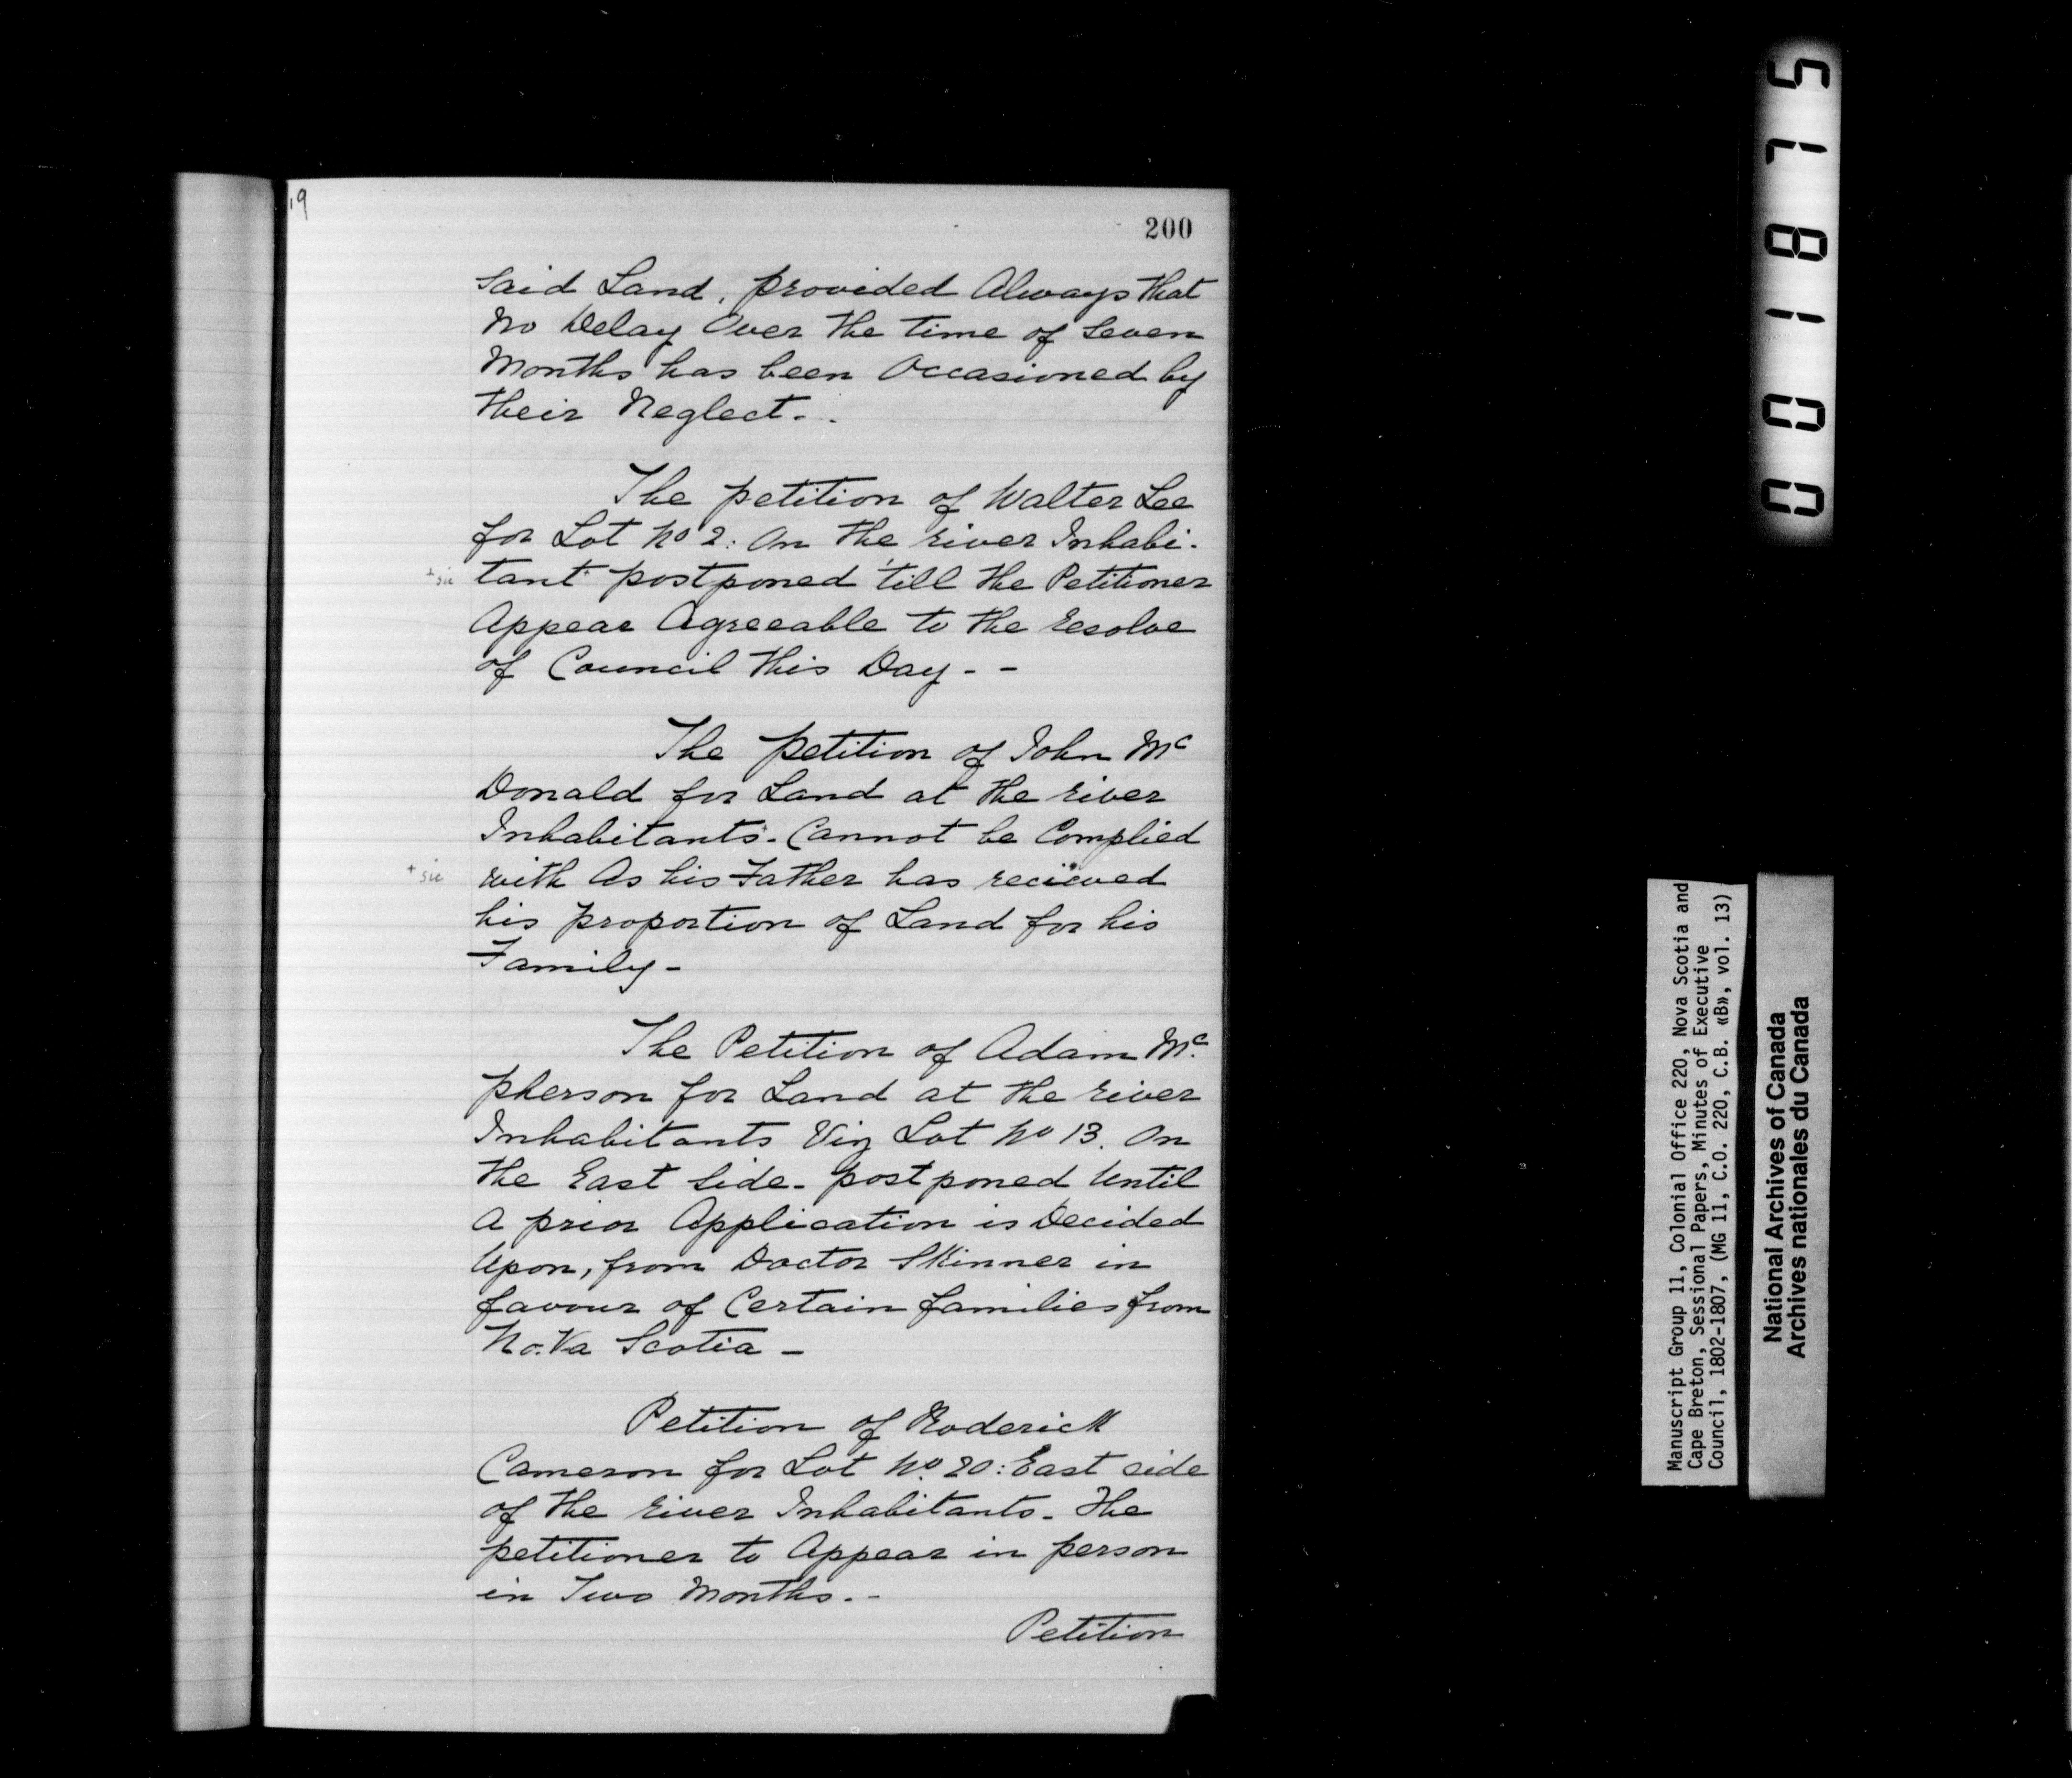 19
200
said Land, provided Always that
No Delay Over the time of seven
Months has been Occasioned by
their Neglect. -
The petition of Walter Lee
for Lot No 2: On the river Inhabi-
+ sic tant postponed 'till the Petitioner
Appear Agreeable to the resolve
of Council this Day - -
The petition of John Mc
Donald for Land at the river
Inhabitants - Cannot be Complied
+ sic with As his Father has recieved
his proportion of Land for his
Family -
The Petition of Adam Mc.
pherson for Land at the river
Inhabitants Viz Lot No 13. On
the East side - postponed Until
A prior Application is Decided
Upon, from Doctor Skinner in
favour of Certain families from
No. Va Scotia -
Petition of Roderick
Cameron for Lot No. 20: East side
of the river Inhabitants - The
petitioner to Appear in person
in Two Months. -
Petition
001875
Manuscript Group 11, Colonial Office 220, Nova Scotia and
Cape Breton, Sessional Papers, Minutes of Executive
Council, 1802-1807, (MG 11, C.O. 220, C.B. «B», vol. 13)
National Archives of Canada
Archives nationales du Canada